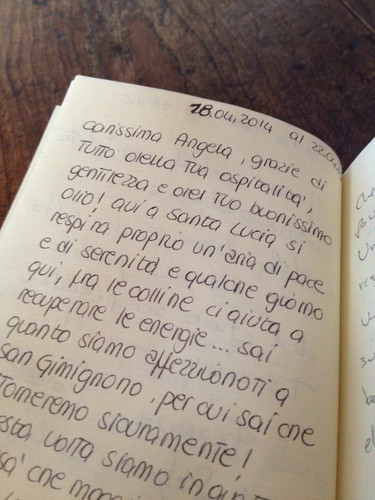 18.04.2014 al 22.04
carissima Angela, grazie di
tutto della tua ospitalità,
gentilezza e del tuo buonissimo
olio! Qui a Santa Lucia si
respira proprio un'aria di pace
e di serenità e qualche giorno
qui, fra le colline ci aiuta a
recuperare le energie... sai
quanto siamo affezionati a
san Gimignano, per cui sai che
Torneremo sicuramente!
volta siamo in
che